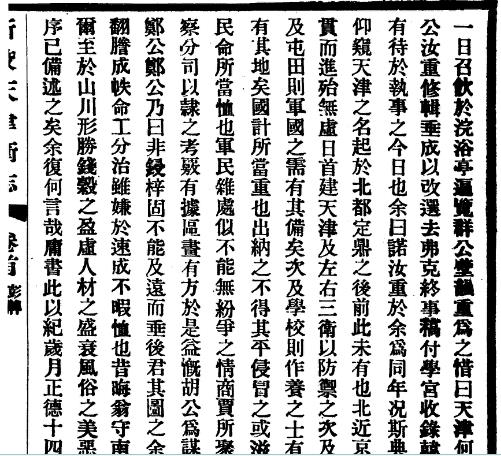 一日召飲於浣浴亭遍覽群公壁韻重爲之惜曰天津何
公汝重修輯垂成以改選去弗克終事稿付學宮收錄韓
有待於執事之今日也余曰諾汝重於余爲同年况斯典
仰窺天津之名起於北都定鼎之後前此未有也北近京
貫而進殆無虛日首建天津及左右三衛以防禦之次及
及屯田則軍國之需有其備矣次及學校則作養之士有
有其地矣國計所當重也出納之不得其平侵冒之或滋
民命所當恤也軍民雜處似不能無紛爭之情商賈所聚
察分司以隷之考覈有據區畫有方於是益慨胡公爲謀
鄭公鄭公乃曰非鋟梓固不能及遠而垂後君其圖之余
翻謄成帙命工分治雖嫌於速成不暇恤也昔晦翁守南
爾至於山川形勝錢穀之盈虛人材之盛衰風俗之美惡
序已備述之矣余復何言哉庸書此以紀歲月正德十四
新校天津衛志 卷首